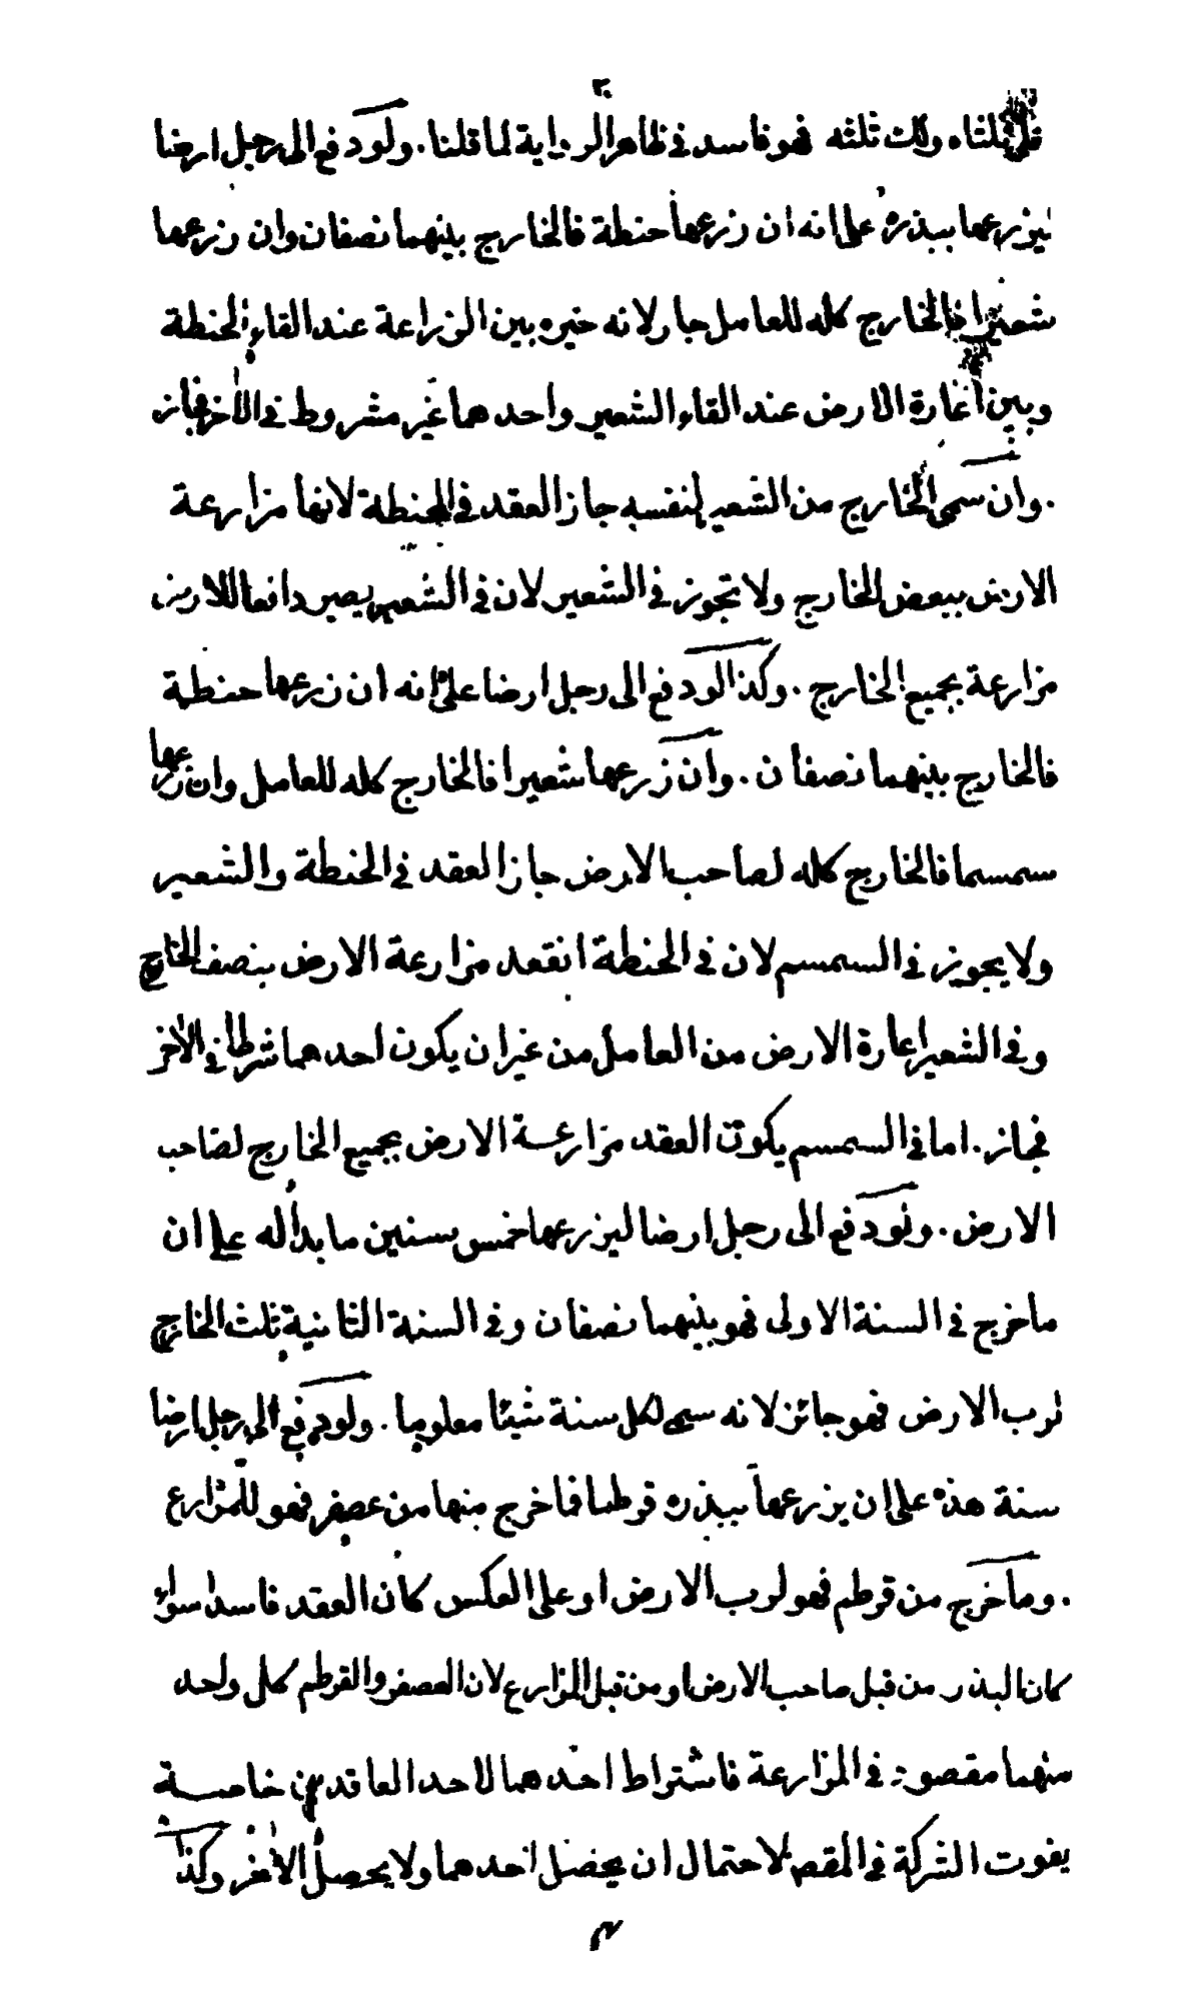 فلي ثلثاه ولك ثلثه فهو فاسد في ظاهر الرواية لما قلنا. ولو دفع الى رجل ارضا
ليزرعها ببذره على انه ان زرعها حنطة فالخارج بينهما نصفان وان زرعها
شعيرا فالخارج كله للعامل جاز لانه خيره بين الزراعة عند القاء الحنطة
وبين اعارة الارض عند القاء الشعير واحدهما غير مشروط في الاخر فجاز
. وان سمى الخارج من الشعير لنفسه جاز العقد في الحنطة لانها مزارعة
الارض ببعض الخارج ولا تجوز في الشعير لان في الشعير يصير دافعا للارض
مزارعة بجميع الخارج. وكذا لو دفع الى رجل ارضا على انه ان زرعها حنطة
فالخارج بينهما نصفان. وان زرعها شعيرا فالخارج كله للعامل وان زرعها
سمسما فالخارج كله لصاحب الارض جاز العقد في الحنطة والشعير
ولا يجوز في السمسم لان في الحنطة انقعد مزارعة الارض بنصف الخارج
وفي الشعير اعارة الارض من العامل من غير ان يكون احدهما شرطا في الاخر
فجاز. اما في السمسم يكون العقد مزارعة الارض بجميع الخارج لصاحب
الارض. ولو دفع الى رجل ارضا ليزرعها خمس سنين ما بدأ له على ان
ما خرج في السنة الاولى فهو بينهما نصفان وفي السنة الثانية ثلث الخارج
لرب الارض فهو جائز لانه سمى لكل سنة شيئا معلوما. ولو دفع الى رجل ارضا
سنة هذه على ان يزرعها ببذره قرطما فما خرج منها من عصفر فهو للمزارع
. وما خرج من قرطم فهو لرب الارض او على العكس كان العقد فاسدا سواء
كان البذر من قبل صاحب الارض او من قبل المزارع لان العصفر والقرطم كل واحد
منهما مقصود في المزارعة فاشتراط احدهما لاحد العاقدين خاصة
يفوت الشركة في المقصد لاحتمال ان يحصل احدهما ولا يحصل الاخر وكذا